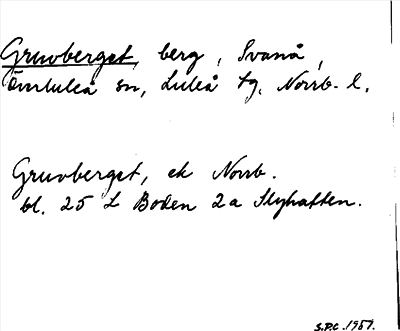 Gruvberget, berg, Svanå,
Överluleå sn, Luleå tg. Norrb. l.
Gruvberget, ek Norrb.
bl. 25 L Boden 2a Slyhatten.
S.P.C. 1957.